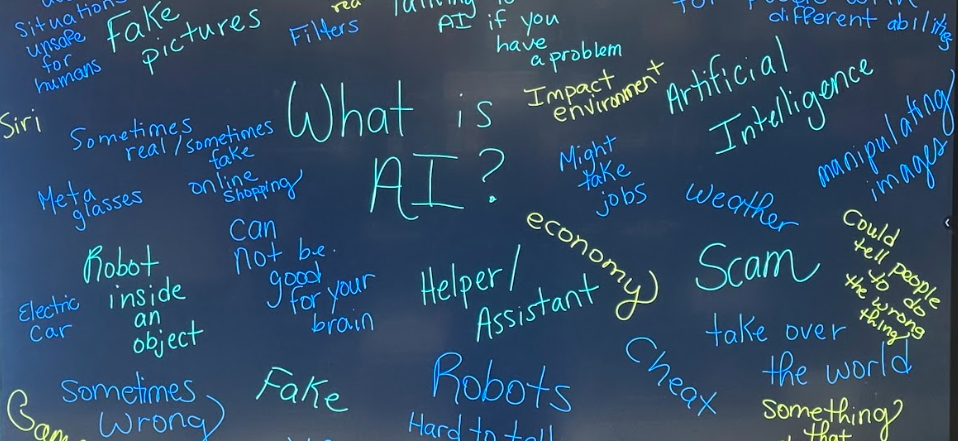 Situation
unsafe
for
humans
Fake
pictures
Filters
AI if you
have
a problem
different ability
Siri
Sometimes
real/sometimes
fake
online
shopping
What is
AI?
Impact
environment
Artificial
Intelligence
manipulating
images
Might
take
jobs
weather
Meta
glasses
can
not be
good
for your
brain
economy
Could
tell people
to do
the wrong
thing
Robot
inside
an
object
Electric
Car
Helper/
Assistant
Scam
take over
the world
Cheax
Sometimes
Wrong
Fake
Robots
Hard to tell
Something
that